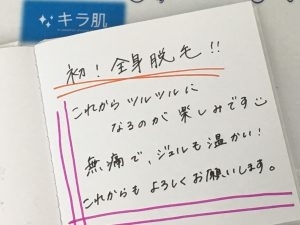 キラ肌
初！全身脱毛！！
これから ツルツルに
なるのが 楽しみです
無痛で、ジェルも温かい！
これからも よろしくお願いします。